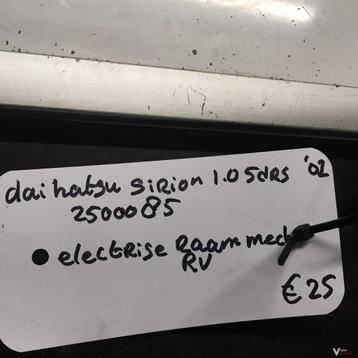 daihatsu sirion 1.0 5drs '02
2500085
electrise Raam mech
RV
€25